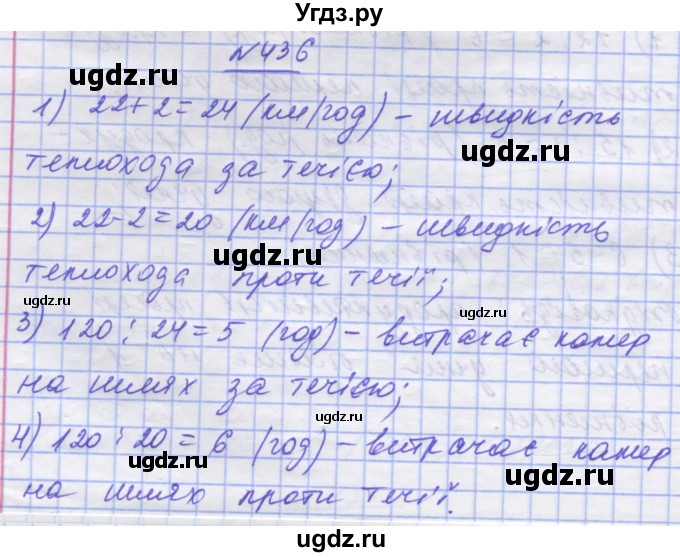 Угдз.ру
№436
1) 22+2=24 (км/год) – швидкість
теплохода за течією;
2) 22-2=20 (км/год) – швидкість
теплохода проти течії;
3) 120 : 24 = 5 (год) – витрачає катер
на шлях за течією;
4) 120 : 20 = 6 (год) – витрачає катер
на шлях проти течії.
ugdz.ru
ugdz.ru
ugdz.ru
ugdz.ru
ugdz.ru
ugdz.ru
ugdz.ru
ugdz.ru
ugdz.ru
ugdz.ru
ugdz.ru
ugdz.ru